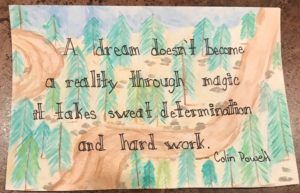 A dream doesn't become
a reality through magic
it takes sweat, determination
and hard work.
Colin Powell